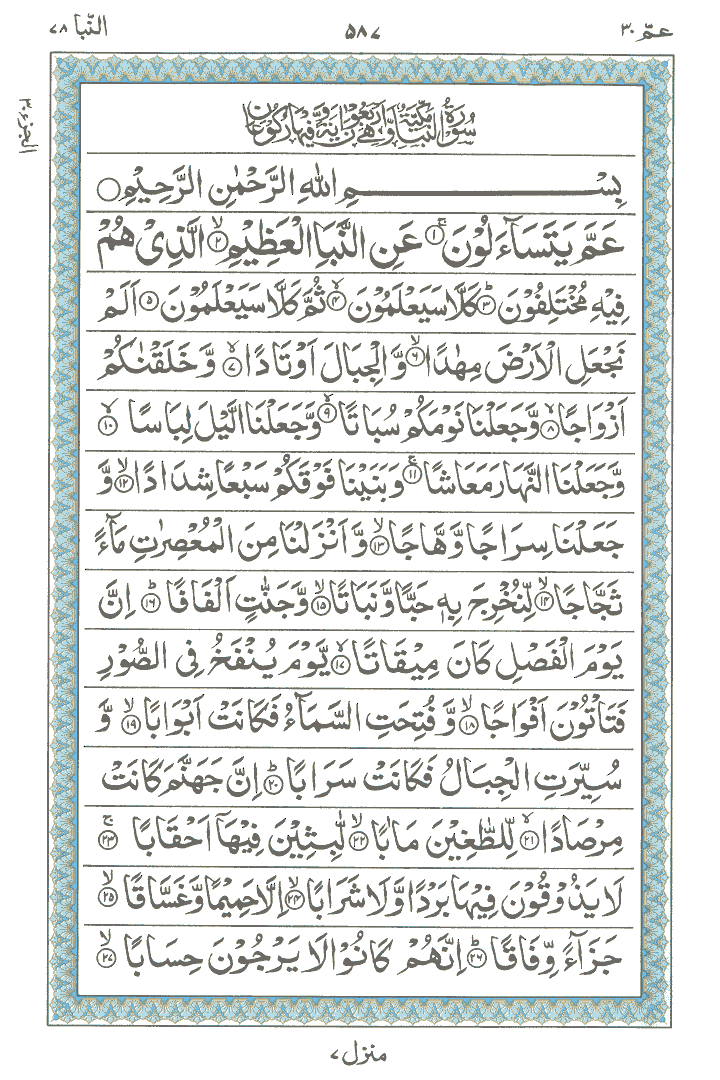 عمّ ٣٠
٥٨٧
النّبا ٧٨
الجزء ٣٠
سُوْرَةُ النَّبَاِ مَكِّيَّةٌ وَّهِيَ اَرْبَعُوْنَ اٰيَةً وَّفِيْهَا رُكُوْعَانِ
بِسْمِ اللهِ الرَّحْمٰنِ الرَّحِيْمِ ○
عَمَّ يَتَسَآءَلُوْنَ ۚ‏﴿۱﴾ عَنِ النَّبَاِ الْعَظِيْمِ ۙ‏﴿۲﴾ الَّذِىْ هُمْ
فِيْهِ مُخْتَلِفُوْنَ ؕ‏﴿۳﴾ كَلَّا سَيَعْلَمُوْنَۙ‏﴿۴﴾ ثُمَّ كَلَّا سَيَعْلَمُوْنَ‏﴿۵﴾ اَلَمْ
نَجْعَلِ الْاَرْضَ مِهٰدًا ۙ‏﴿۶﴾ وَّالْجِبَالَ اَوْتَادًا ۙ‏﴿۷﴾ وَّخَلَقْنٰكُمْ
اَزْوَاجًا ۙ‏﴿۸﴾ وَّجَعَلْنَا نَوْمَكُمْ سُبَاتًا ۙ‏﴿۹﴾ وَّجَعَلْنَا الَّيْلَ لِبَاسًا ۙ‏﴿۱۰﴾
وَّجَعَلْنَا النَّهَارَ مَعَاشًا ۚ‏﴿۱۱﴾ وَبَنَيْنَا فَوْقَكُمْ سَبْعًا شِدَادًا ۙ‏﴿۱۲﴾ وَّ
جَعَلْنَا سِرَاجًا وَّهَّاجًا ۙ‏﴿۱۳﴾ وَّاَنْزَلْنَا مِنَ الْمُعْصِرٰتِ مَآءً
ثَجَّاجًا ۙ‏﴿۱۴﴾ لِّنُخْرِجَ بِهٖ حَبًّا وَّنَبَاتًا ۙ‏﴿۱۵﴾ وَّجَنّٰتٍ اَلْفَافًا ؕ‏﴿۱۶﴾ اِنَّ
يَوْمَ الْفَصْلِ كَانَ مِيْقَاتًا ۙ‏﴿۱۷﴾ يَّوْمَ يُنْفَخُ فِى الصُّوْرِ
فَتَاْتُوْنَ اَفْوَاجًا ۙ‏﴿۱۸﴾ وَّفُتِحَتِ السَّمَآءُ فَكَانَتْ اَبْوَابًا ۙ‏﴿۱۹﴾ وَّ
سُيِّرَتِ الْجِبَالُ فَكَانَتْ سَرَابًا ؕ‏﴿۲۰﴾ اِنَّ جَهَنَّمَ كَانَتْ
مِرْصَادًا ۙ‏﴿۲۱﴾ لِّلطّٰغِيْنَ مَاٰبًا ۙ‏﴿۲۲﴾ لّٰبِثِيْنَ فِيْهَاۤ اَحْقَابًا ۚ‏﴿۲۳﴾
لَا يَذُوْقُوْنَ فِيْهَا بَرْدًا وَّلَا شَرَابًا ۙ‏﴿۲۴﴾ اِلَّا حَمِيْمًا وَّغَسَّاقًا ۙ‏﴿۲۵﴾
جَزَآءً وِّفَاقًا ؕ‏﴿۲۶﴾ اِنَّهُمْ كَانُوْا لَا يَرْجُوْنَ حِسَابًا ۙ‏﴿۲۷﴾
منزل ٧